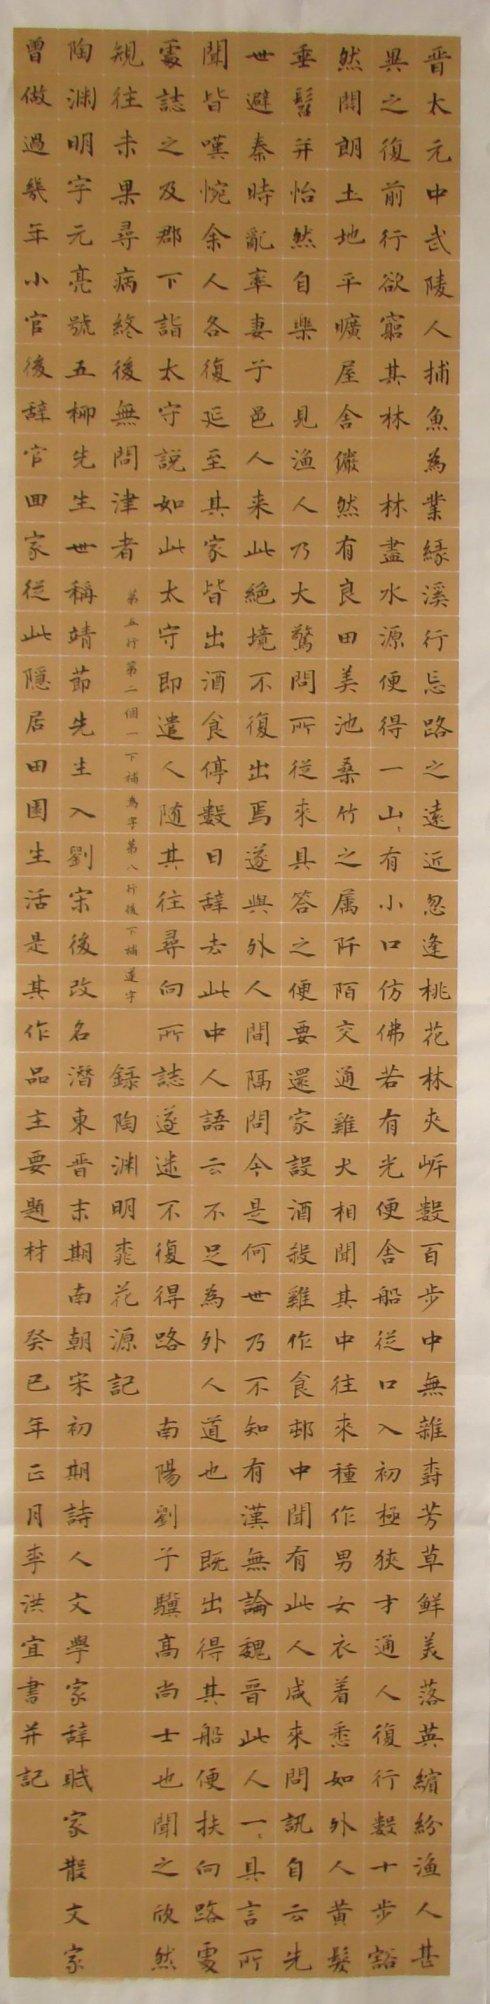 晋太元中武陵人捕魚為業緣溪行忘路之遠近忽逢桃花林夾岸數百步中無雜樹芳草鮮美落英繽紛漁人甚
異之復前行欲窮其林 林盡水源便得一山、有小口仿佛若有光便舍船從口入初極狹才通人復行數十步豁
然開朗土地平曠屋舍儼然有良田美池桑竹之属阡陌交通雞犬相聞其中往来種作男女衣着悉如外人黄髮
垂髫并怡然自樂 見漁人乃大驚問所從來具答之便要還家設酒殺雞作食邨中聞有此人咸來問訊自云先
世避秦時亂率妻子邑人来此絕境不復出焉遂與外人間隔問今是何世乃不知有漢無論魏晋此人一、具言所
聞皆嘆惋余人各復延至其家皆出酒食停數日辞去此中人語云不足為外人道也 既出得其船便扶向路處
處誌之及郡下詣太守說如此太守即遣人随其往尋向所誌遂迷不復得路 南陽劉子驥高尚士也聞之欣然
規往未果尋病終後無問津者
第五行第二個一下補為字第八行後下補遂字
錄陶渊明桃花源記
陶渊明字元亮號五柳先生世稱靖節先生入劉宋後改名潛東晋末期南朝宋初期詩人文學家辞賦家散文家
曾做過幾年小官後辞官回家從此隱居田園生活是其作品主要題材 癸巳年正月李洪宜書并記